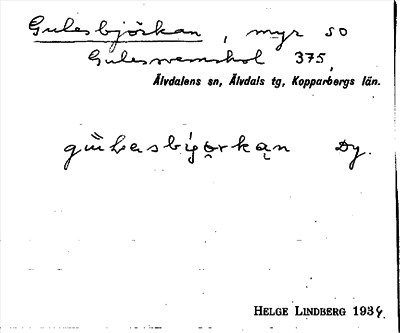 Gulesbjörkan, myr so
Gulesvemshol 375,
Älvdalens sn, Älvdals tg, Kopparbergs län.
Dy.
HELGE LINDBERG 1934.